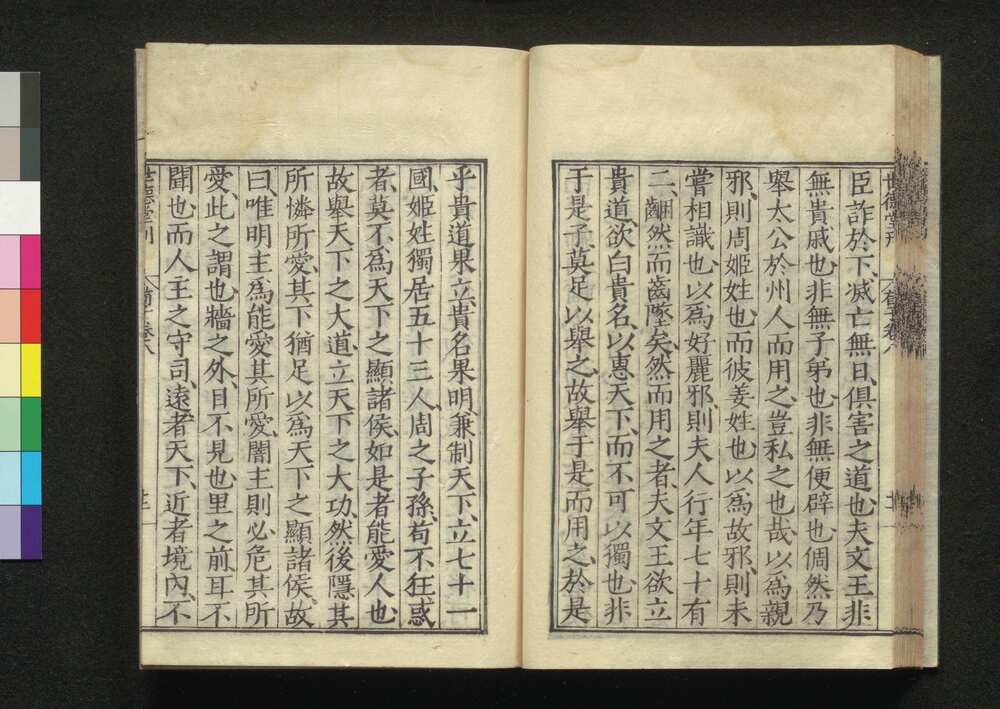 臣詐於下、滅亡無日、俱害之道也、夫文王非
無貴戚也、非無子弟也、非無便辟也、倜然乃
舉太公於州人而用之、豈私之也哉、以爲親
邪、則周姬姓也、而彼姜姓也、以爲故邪、則未
嘗相識也、以爲好麗邪、則夫人行年七十有
二、齫然而齒墜矣、然而用之者、夫文王欲立
貴道、欲白貴名、以惠天下、而不可以獨也、非
于是子、莫足以舉之、故舉于是而用之、於是
乎貴道果立、貴名果明、兼制天下、立七十一
國、姬姓獨居五十三人、周之子孫、苟不狂惑
者、莫不爲天下之顯諸侯、如是者能愛人也、
故舉天下之大道、立天下之大功、然後隱其
所憐所愛、其下猶足以爲天下之顯諸侯、故
曰、唯明主爲能愛其所愛、闇主則必危其所
愛、此之謂也、牆之外、目不見也、里之前、耳不
聞也、而人主之守司、遠者天下、近者境內、不